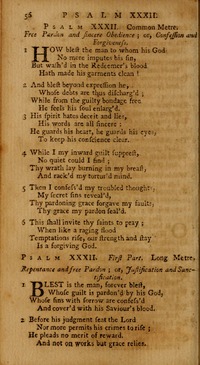 56 PSALM XXXII.
PSALM XXXII. Common Metre.
Free Pardon and sincere Obedience; or, Confession and
Forgiveness.
1 HOW blest the man to whom his God
No more imputes his sin,
But wash'd in the Redeemer's blood
Hath made his garments clean!
2 And blest beyond expression he,
Whose debts are thus discharg'd;
While from the guilty bondage free
He feels his soul enlarg'd.
3 His spirit hates deceit and lies,
His words are all sincere:
He guards his heart, he guards his eyes,
To keep his conscience clear.
4 While I my inward guilt supprest,
No quiet could I find;
Thy wrath lay burning in my breast,
And rack'd my tortur'd mind.
5 Then I confess'd my troubled thoughts,
My secret sins reveal'd,
Thy pardoning grace forgave my faults,
Thy grace my pardon seal'd.
6 This shall invite thy saints to pray;
When like a raging flood
Temptations rise, our strength and stay
Is a forgiving God.
PSALM XXXII. First Part. Long Metre.
Repentance and free Pardon; or, Justification and Sanc-
tification.
1 BLEST is the man, forever blest,
Whose guilt is pardon'd by his God,
Whose sins with sorrow are confess'd
And cover'd with his Saviour's blood.
2 Before his judgment seat the Lord
Nor more permits his crimes to rise;
He pleads no merit of reward.
And not on works but grace relies.